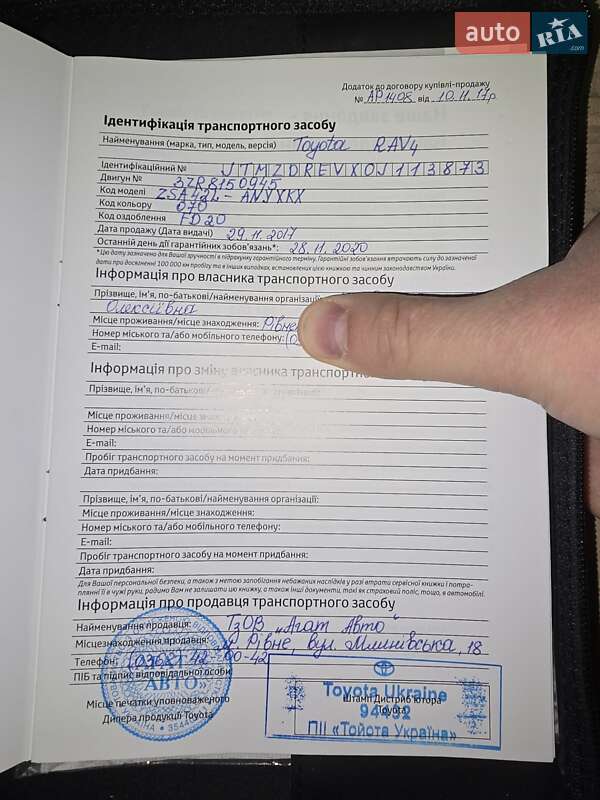 auto RIA .com
Додаток до договору купівлі-продажу
№ АР1498 від 10.11.17р
Ідентифікація транспортного засобу
Найменування (марка, тип, модель, версія) Toyota RAV4
Ідентифікаційний № JTMZDREVX0J113873
Двигун № 3ZR8150945
Код моделі ZSA42L-ANYXKX
Код кольору 070
Код оздоблення FD20
Дата продажу (Дата видачі) 29.11.2017
Останній день дії гарантійних зобов'язань*: 28.11.2020
*Цю дату зазначено для Вашої зручності в підрахунку гарантійного терміну. Гарантійні зобов'язання втрачають силу до зазначеної
дати при досягненні 100 000 км пробігу та в інших випадках, встановлених цією книжкою та чинним законодавством України.
Інформація про власника транспортного засобу
Прізвище, ім'я, по-батькові/найменування організації
Олексіївна
Місце проживання/місце знаходження: Рівне
Номер міського та/або мобільного телефону: (0
E-mail:
Інформація про зміну власника транспортного
Прізвище, ім'я, по-батькові/
Місце проживання/місце
Номер міського та/або мобільного
E-mail:
Пробіг транспортного засобу на момент придбання:
Дата придбання:
Прізвище, ім'я, по-батькові/найменування організації:
Місце проживання/місце знаходження:
Номер міського та/або мобільного телефону:
E-mail:
Пробіг транспортного засобу на момент придбання:
Дата придбання:
Для Вашої персональної безпеки, а також з метою запобігання небажаних наслідків у разі втрати сервісної книжки і потра-
плянні її в чужі руки, радимо Вам не залишати цю книжку, а також інші документи, такі як страховий поліс, тощо, в автомобілі.
Інформація про продавця транспортного засобу
Найменування продавця: ТзОВ „Агат Авто"
Місцезнаходження продавця: м. Рівне, вул. Млинівська, 18
Телефон:
ПІБ та підпис відповідальної особи
АВТО
Місце печатки уповноваженого
Дилера продукції Toyota
Toyota Ukraine
94432
ПІІ «Тойота Україна»
Штамп Дистриб'ютора
Toyota